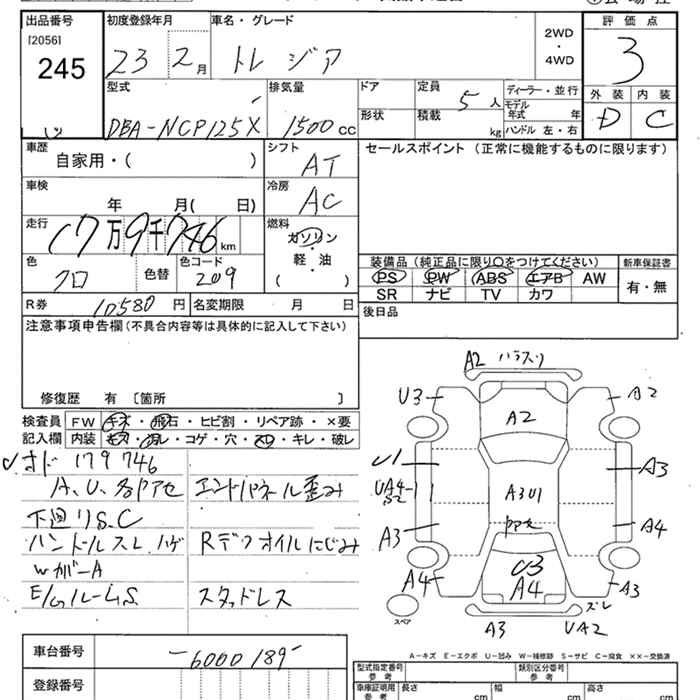 出品番号
[2056]
245
初度登録年月
23 2月
車名・グレード
トレジア
2WD
・
4WD
評価点
3
外装 内装
D C
型式
DBA-NCP125X
排気量
1500cc
ドア
形状
定員
5人
積載
kg
ディーラー・並行
モデル年式 年
ハンドル 左・右
車歴
自家用・( )
シフト
AT
セールスポイント (正常に機能するものに限ります)
車検
年 月( 日)
冷房
AC
走行
17万9千746km
燃料
ガソリン
・
軽・油
( )
色
クロ
色替
色コード
209
装備品 (純正品に限り○をつけてください)
PS PW ABS エアB AW
SR ナビ TV カワ
新車保証書
有・無
R券
10580円
名変期限 月 日
後日品
注意事項申告欄(不具合内容等は具体的に記入して下さい)
修復歴 有 〔箇所 〕
検査員記入欄
FW キズ・飛石・ヒビ割・リペア跡・×要
内装 キズ・汚レ・コゲ・穴・スレ・キレ・破レ
オド 179746
A、U、各Pアセ
エンドパネル歪み
下廻りS.C
ハンドルスレ、ハゲ
Rデフオイルにじみ
WガバーA
E/gルームS
スタッドレス
A2 バラスリ
U3
A2
A2
U1
A3
UA4-1
S2
A3U1
A3
A4
U3
A4
A4
A3
スペア
ズレ
A3
UA2
A-キズ E-エクボ U-凹み W-補修跡 S-サビ C-腐食 ××-交換済
車台番号
-6000189-
登録番号
型式指定番号
参考
類別区分番号
車庫証明用
参考
長さ cm
幅 cm
高さ cm